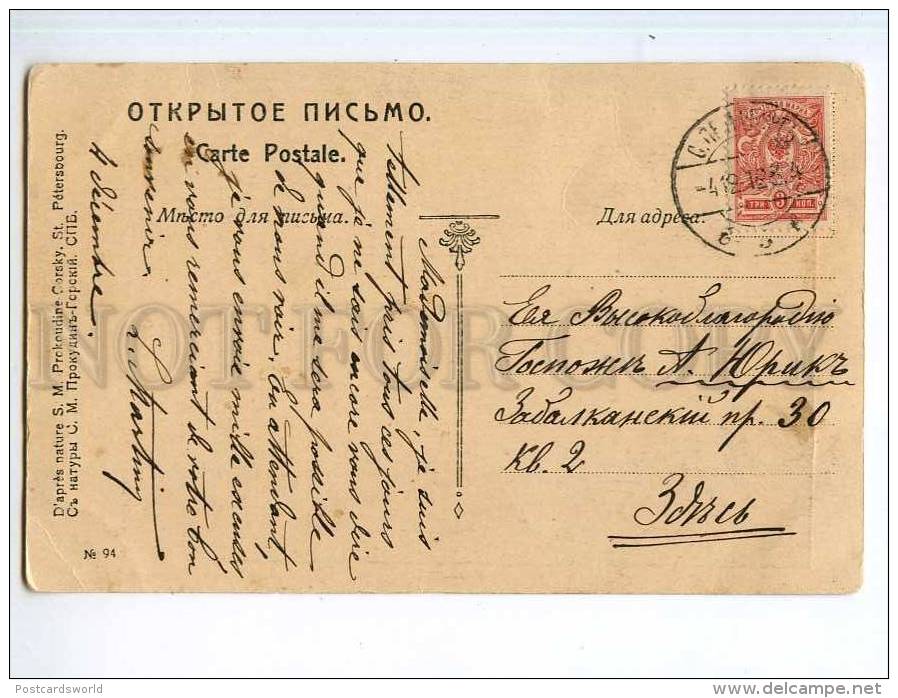 ОТКРЫТОЕ ПИСЬМО.
Carte Postale.
Мѣсто для письма.
Для адреса:
С.ПЕТЕРБУРГ
-4 12 12
ТРИ КОП.
Ея Высокоблагородію
Госпожѣ А. Юрикъ
Забалканскій пр. 30
кв. 2
Здѣсь
Mademoiselle, je suis
tellement pris tous ces jours
que je ne sais encore vous dire
quand il me sera possible
de vous voir. En attendant,
je vous envoie mille excuses
en vous remerciant de votre bon
souvenir.
Martin
4 décembre.
D'après nature S. M. Prokoudine-Gorsky, St. Pétersbourg.
Съ натуры С. М. Прокудинъ-Горскій. СПБ.
№ 94
NOT FOR COPY
Postcardsworld
www.delcampe.net